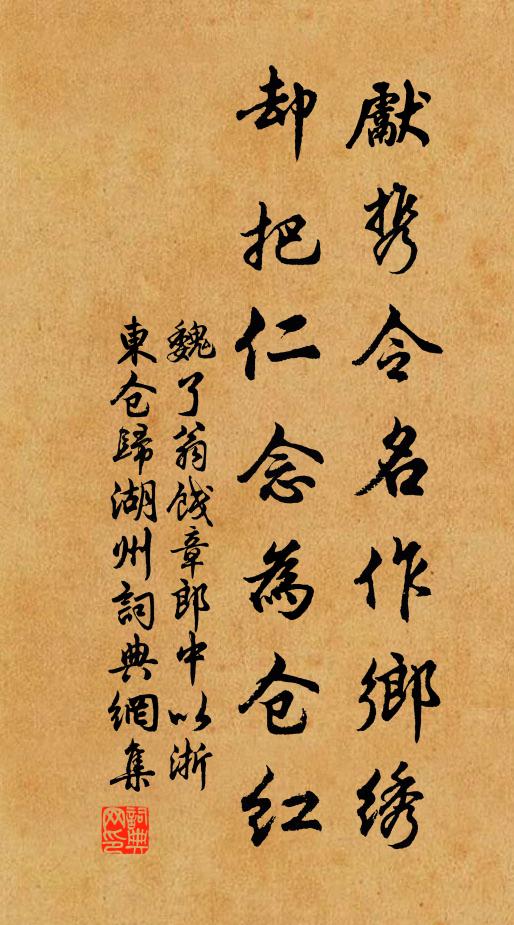 獻携令名作鄉绣
却把仁念為仓红
魏了翁餞章郎中以浙
東仓歸湖州詞典網集
詞典网印